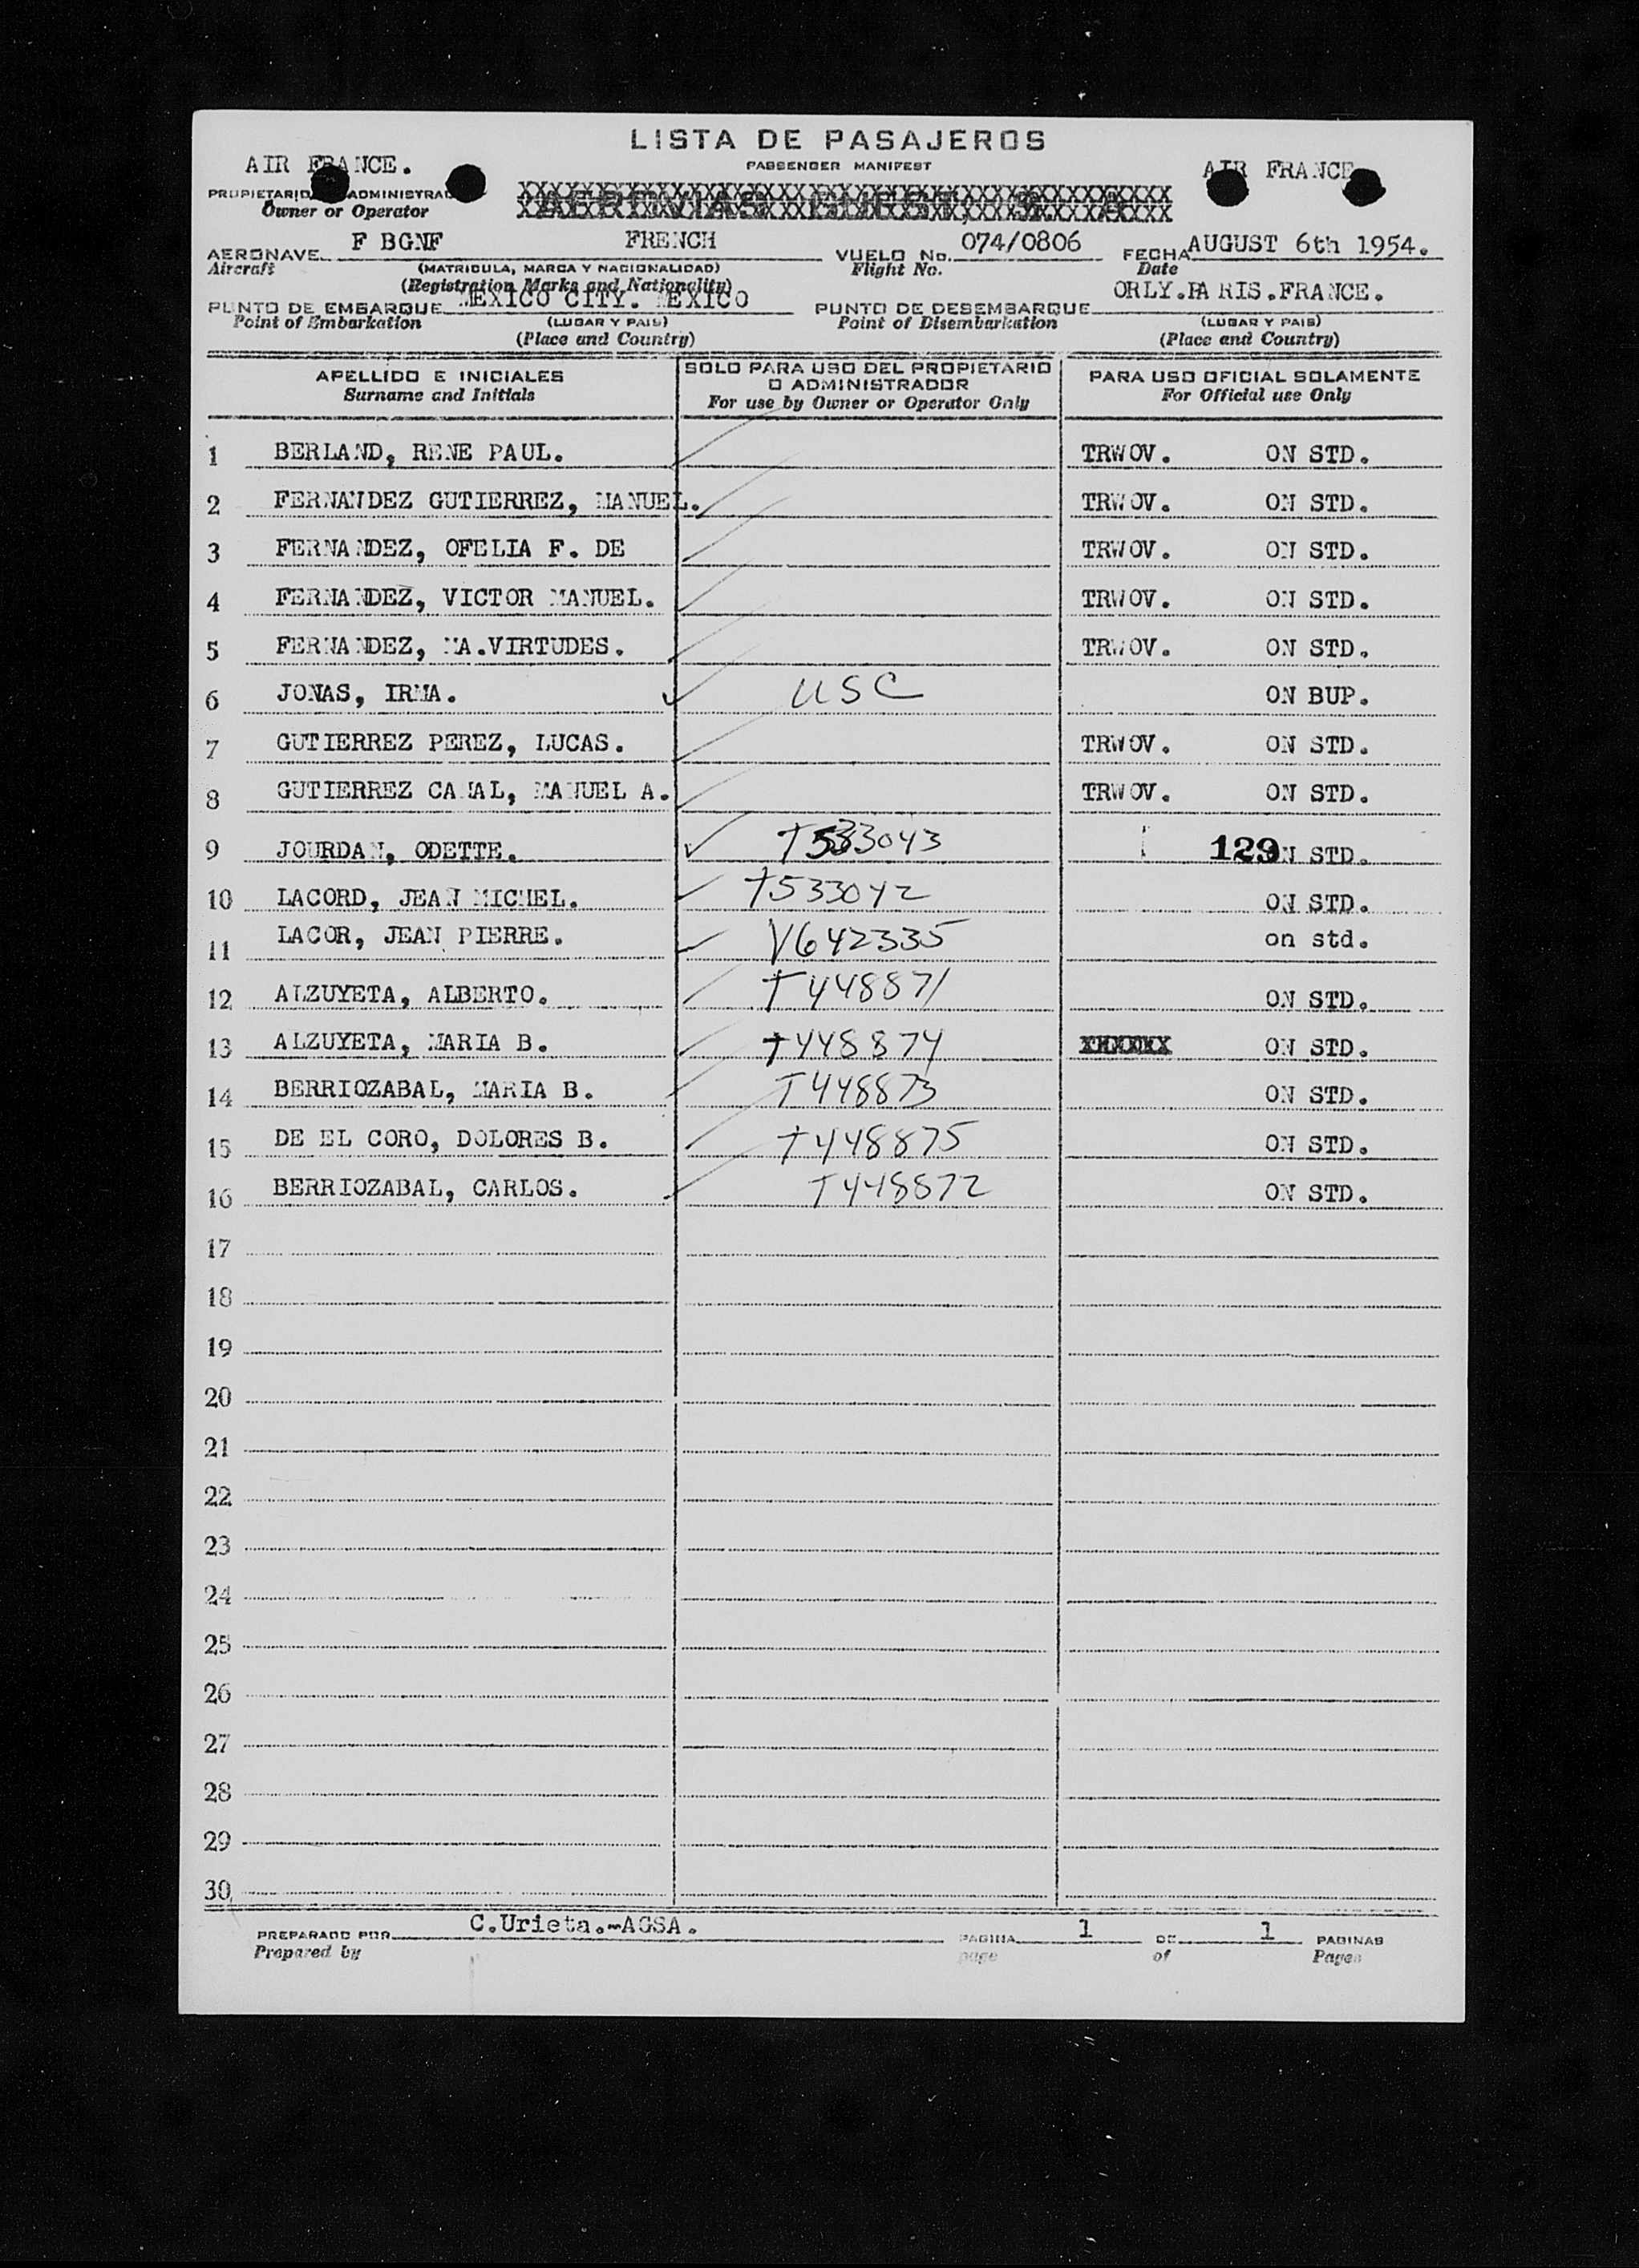 LISTA DE PASAJEROS
PASSENGER MANIFEST
AIR FRANCE.
AIR FRANCE
PROPIETARIO ADMINISTRAD
Owner or Operator
XXXXXXXXXXXXXXXXXXXXXXXXXXXXXXXXXXXXXX
AERONAVE F BGNF FRENCH VUELO No. 074/0806 FECHA AUGUST 6th 1954.
Aircraft (MATRICULA, MARCA Y NACIONALIDAD) Flight No. Date
(Registration Marks and Nationality)
PUNTO DE EMBARQUE MEXICO CITY. MEXICO PUNTO DE DESEMBARQUE ORLY.PA RIS.FRANCE.
Point of Embarkation (LUGAR Y PAIS) Point of Disembarkation (LUGAR Y PAIS)
(Place and Country) (Place and Country)
APELLIDO E INICIALES SOLO PARA USO DEL PROPIETARIO O ADMINISTRADOR PARA USO OFICIAL SOLAMENTE
Surname and Initials For use by Owner or Operator Only For Official use Only
1 BERLAND, RENE PAUL. TRWOV. ON STD.
2 FERNANDEZ GUTIERREZ, MANUEL. TRWOV. ON STD.
3 FERNANDEZ, OFELIA F. DE TRWOV. ON STD.
4 FERNANDEZ, VICTOR MANUEL. TRWOV. ON STD.
5 FERNANDEZ, MA.VIRTUDES. TRWOV. ON STD.
6 JONAS, IRMA. ✓ USC ON BUP.
7 GUTIERREZ PEREZ, LUCAS. TRWOV. ON STD.
8 GUTIERREZ CANAL, MANUEL A. TRWOV. ON STD.
9 JOURDAN, ODETTE. ✓ T533043 129 ON STD.
10 LACORD, JEAN MICHEL. ✓ T533042 ON STD.
11 LACOR, JEAN PIERRE. ✓ V642335 on std.
12 ALZUYETA, ALBERTO. ✓ T448871 ON STD.
13 ALZUYETA, MARIA B. ✓ T448874 ON STD.
14 BERRIOZABAL, MARIA B. ✓ T448873 ON STD.
15 DE EL CORO, DOLORES B. ✓ T448875 ON STD.
16 BERRIOZABAL, CARLOS. ✓ T448872 ON STD.
17
18
19
20
21
22
23
24
25
26
27
28
29
30
PREPARADO POR C.Urieta.-AGSA. PAGINA 1 DE 1 PAGINAS
Prepared by page of Pages